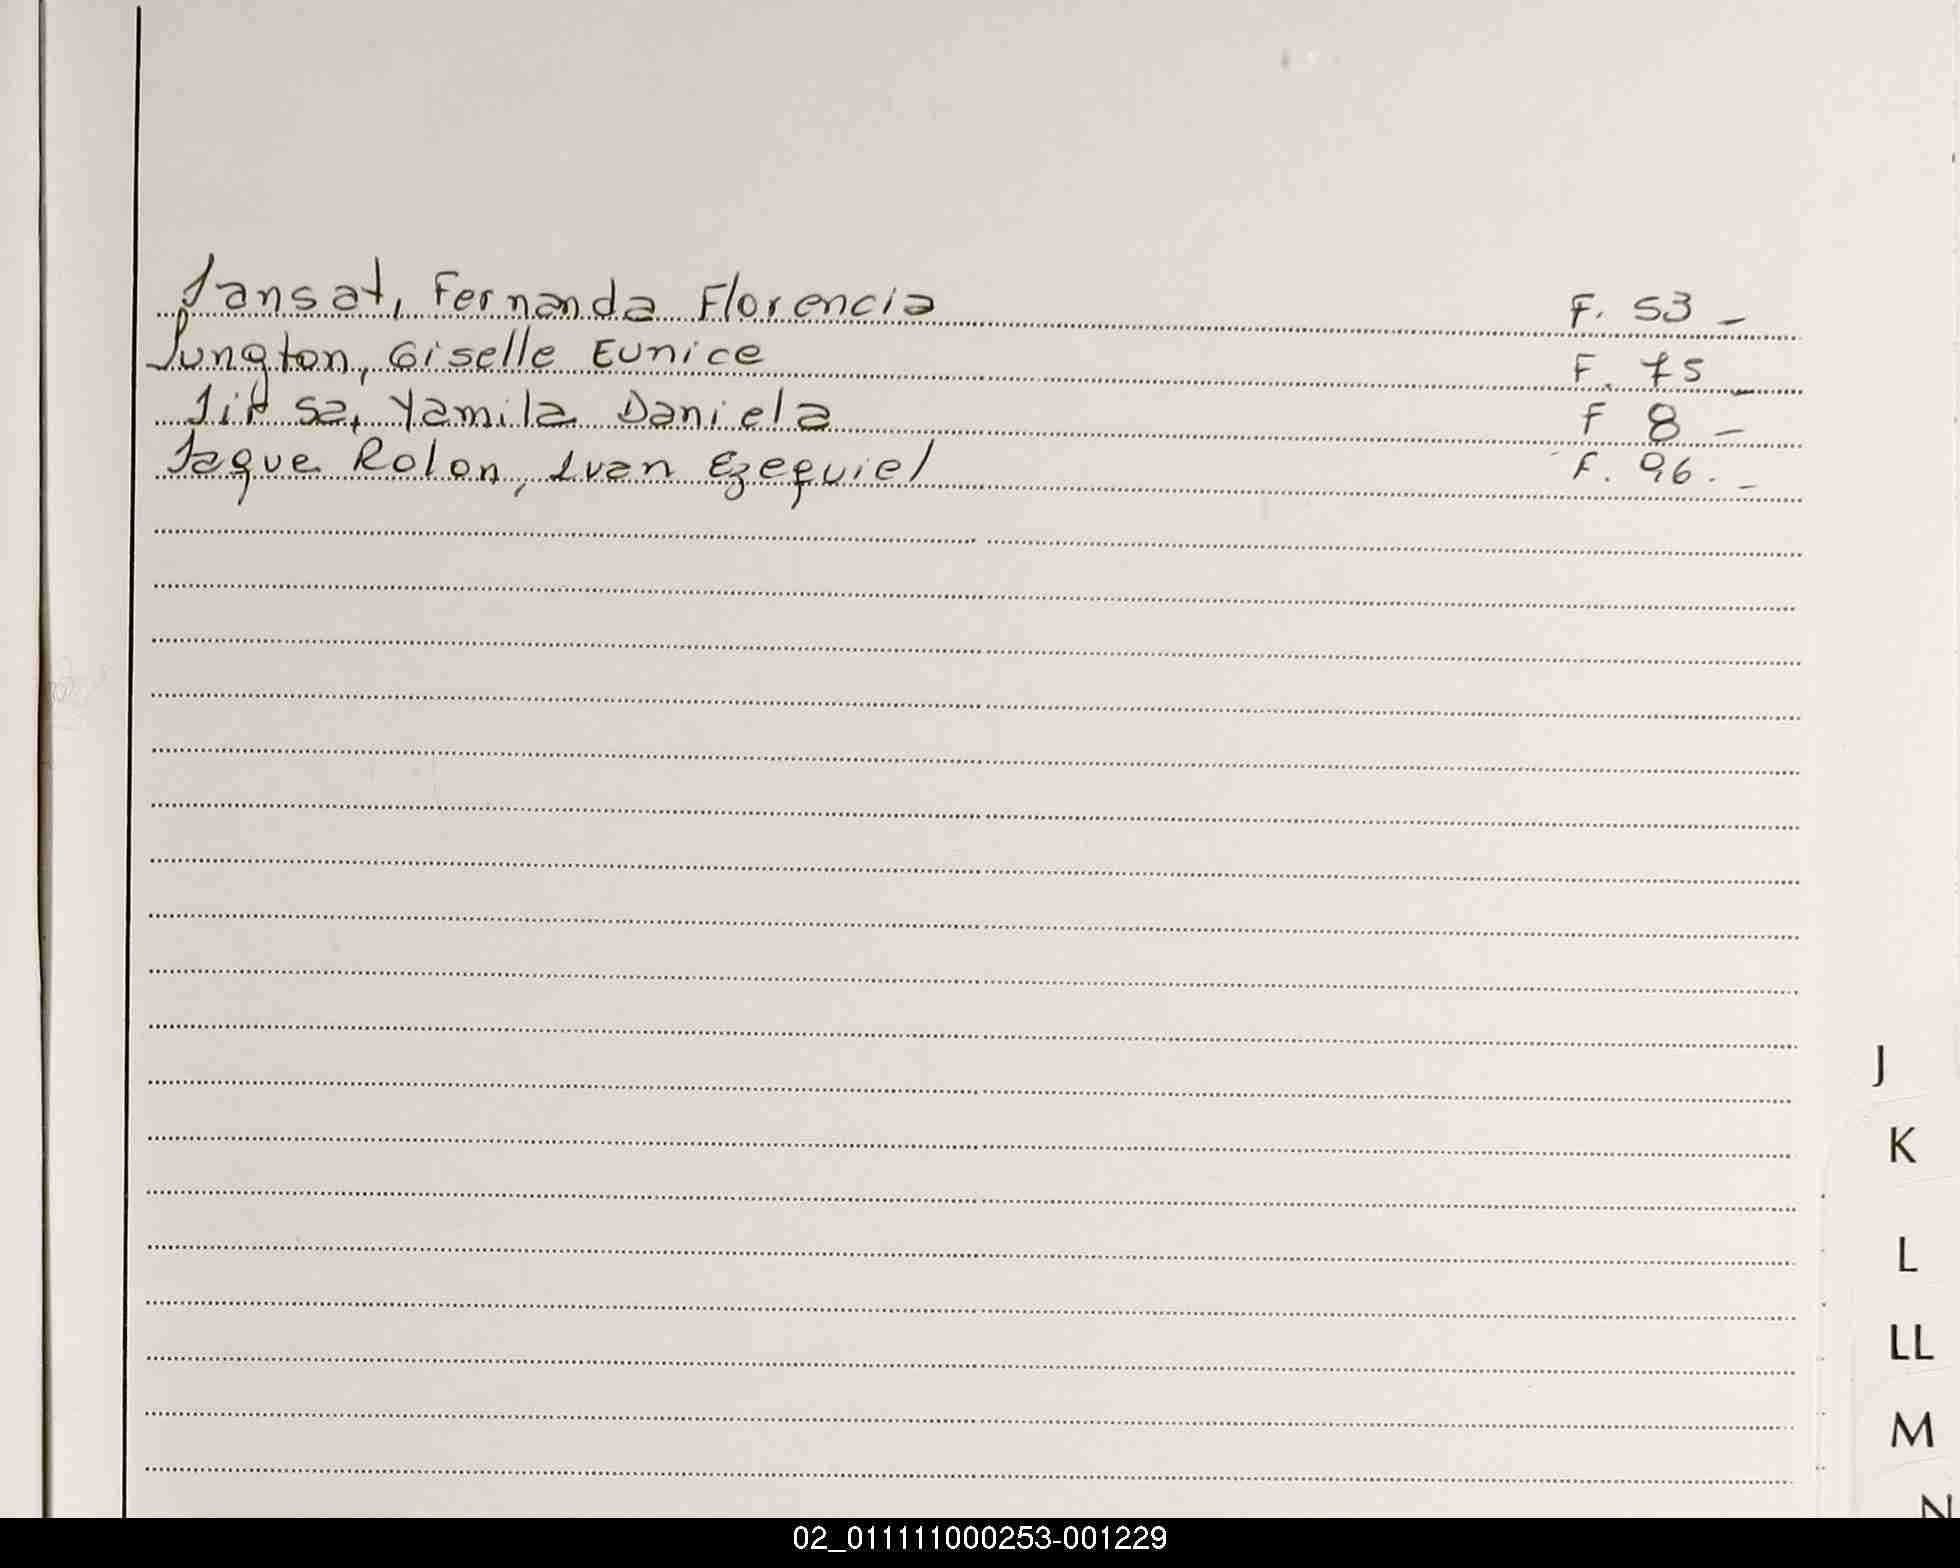 Jansat, Fernanda Florencia F. 53 -
Jungton, Giselle Eunice F. 75 -
Yamila Daniela F 8 -
Jaque Rolon, Ivan Ezequiel F. 96. -
J
K
L
LL
M
N
02_011111000253-001229